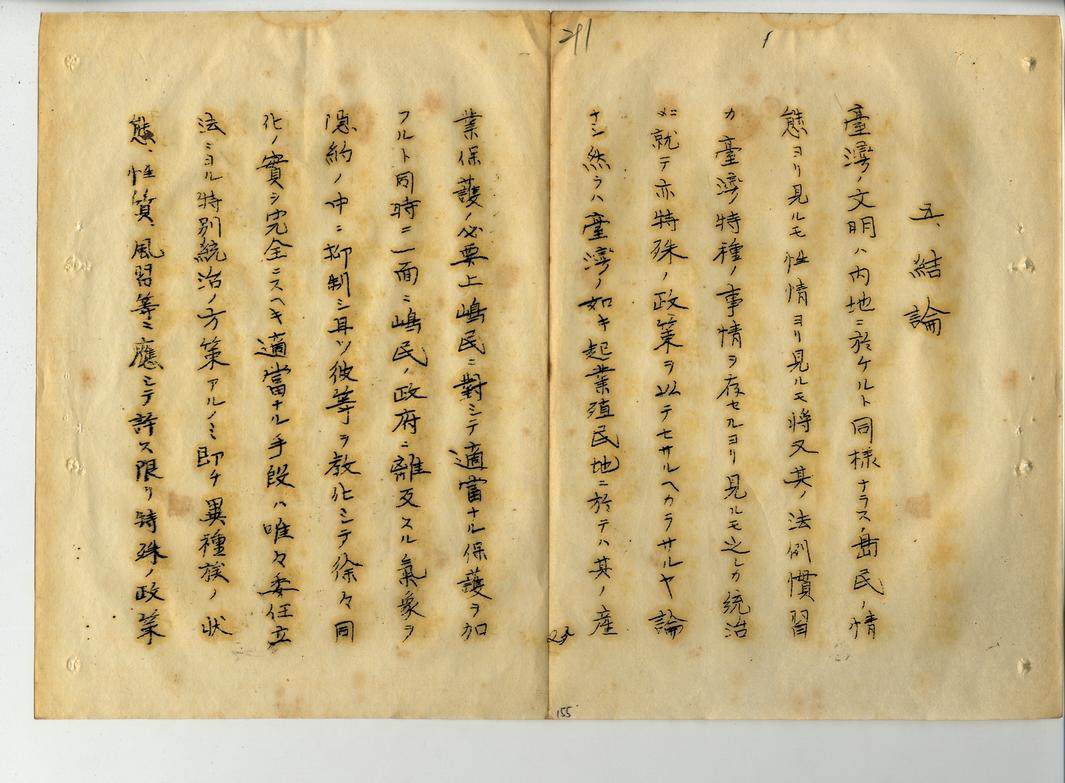 五、結論
臺灣ノ文明ハ内地ニ於ケルト同様ナラス島民ノ情
態ヨリ見ルモ性情ヨリ見ルモ将又其ノ法例慣習
カ臺灣特種ノ事情ヲ存セルヨリ見ルモ之レカ統治
ニ就テ亦特殊ノ政策ヲ以テセサルヘカラサルヤ論
ナシ然ラハ臺湾ノ如キ起業殖民地ニ於テハ其ノ産
業保護ノ必要上嶋民ニ對シテ適當ナル保護ヲ加
フルト同時ニ一面ニ嶋民ノ政府ニ離反スル氣象ヲ
隠約ノ中ニ抑制シ耳ツ彼等ヲ教化シテ徐々同
化ノ實シ完全ニスヘキ適當ナル手段ハ唯々委任立
法ニヨル特別統治ノ方策アルノミ即チ異種族ノ状
態、性質、風習等ニ應シテ許ス限リ特殊ノ政策
291
155